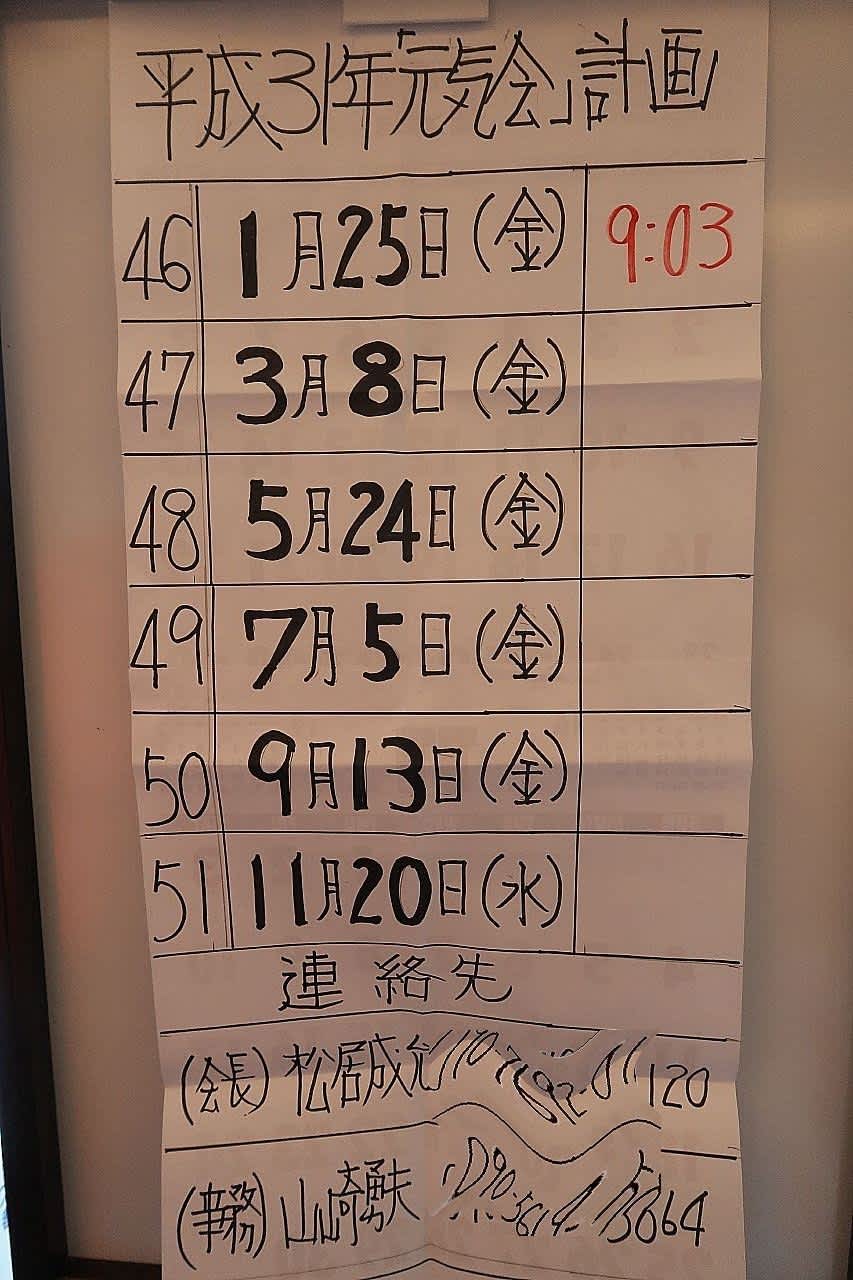 平成31年「元気会」計画
46 1月25日(金) 9:03
47 3月8日(金)
48 5月24日(金)
49 7月5日(金)
50 9月13日(金)
51 11月20日(水)
連絡先
(会長) 松居成允 120
(事務) 山崎勇夫 3664